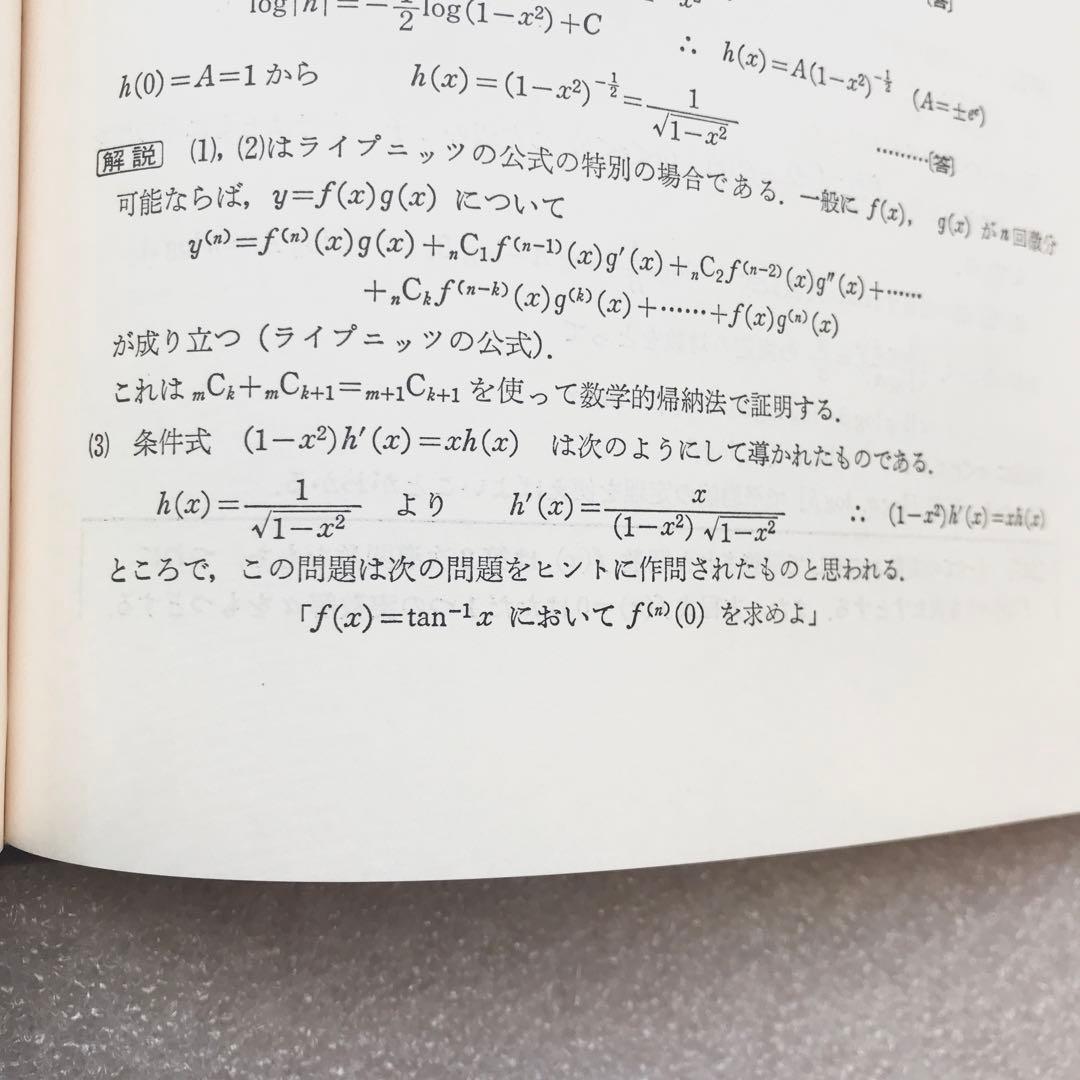 log|h|=−1/2 log(1−x²)+C
∴ h(x)=A(1−x²)^{−1/2} (A=±e^c)
h(0)=A=1 から h(x)=(1−x²)^{−1/2}=1/√(1−x²)
………〔答〕
解説 (1), (2)はライプニッツの公式の特別の場合である．一般に f(x), g(x) がn回微分
可能ならば，y=f(x)g(x) について
y⁽ⁿ⁾=f⁽ⁿ⁾(x)g(x)+ₙC₁f⁽ⁿ⁻¹⁾(x)g′(x)+ₙC₂f⁽ⁿ⁻²⁾(x)g″(x)+……
+ₙCₖf⁽ⁿ⁻ᵏ⁾(x)g⁽ᵏ⁾(x)+……+f(x)g⁽ⁿ⁾(x)
が成り立つ（ライプニッツの公式）．
これは ₘCₖ+ₘCₖ₊₁=ₘ₊₁Cₖ₊₁ を使って数学的帰納法で証明する．
(3) 条件式 (1−x²)h′(x)=xh(x) は次のようにして導かれたものである．
h(x)=1/√(1−x²) より h′(x)=x/((1−x²)√(1−x²)) ∴ (1−x²)h′(x)=xh(x)
ところで，この問題は次の問題をヒントに作問されたものと思われる．
「f(x)=tan⁻¹x において f⁽ⁿ⁾(0) を求めよ」